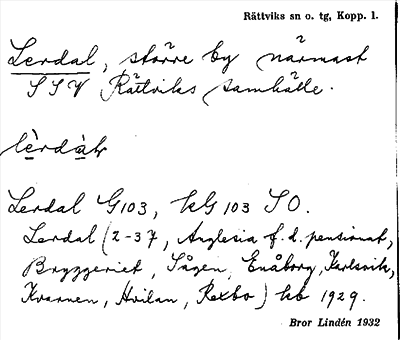 Rättviks sn o. tg, Kopp. l.
Lerdal, större by närmast
SSV Rättviks samhälle.
Lerdal G103, kG 103 SO.
Lerdal (2-37, Anglesia f.d. pensionat,
Bryggeriet, Sågen, Enåborg, Karlsvik,
Kvarnen, Hvilan, Rexbo) kb 1929.
Bror Lindén 1932